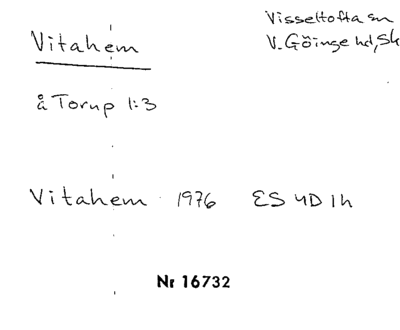 Vitahem
Visseltofta sn
V. Göinge hd, Sk
å Torup 1:3
Vitahem 1976 ES 4D 1h
Nr 16732